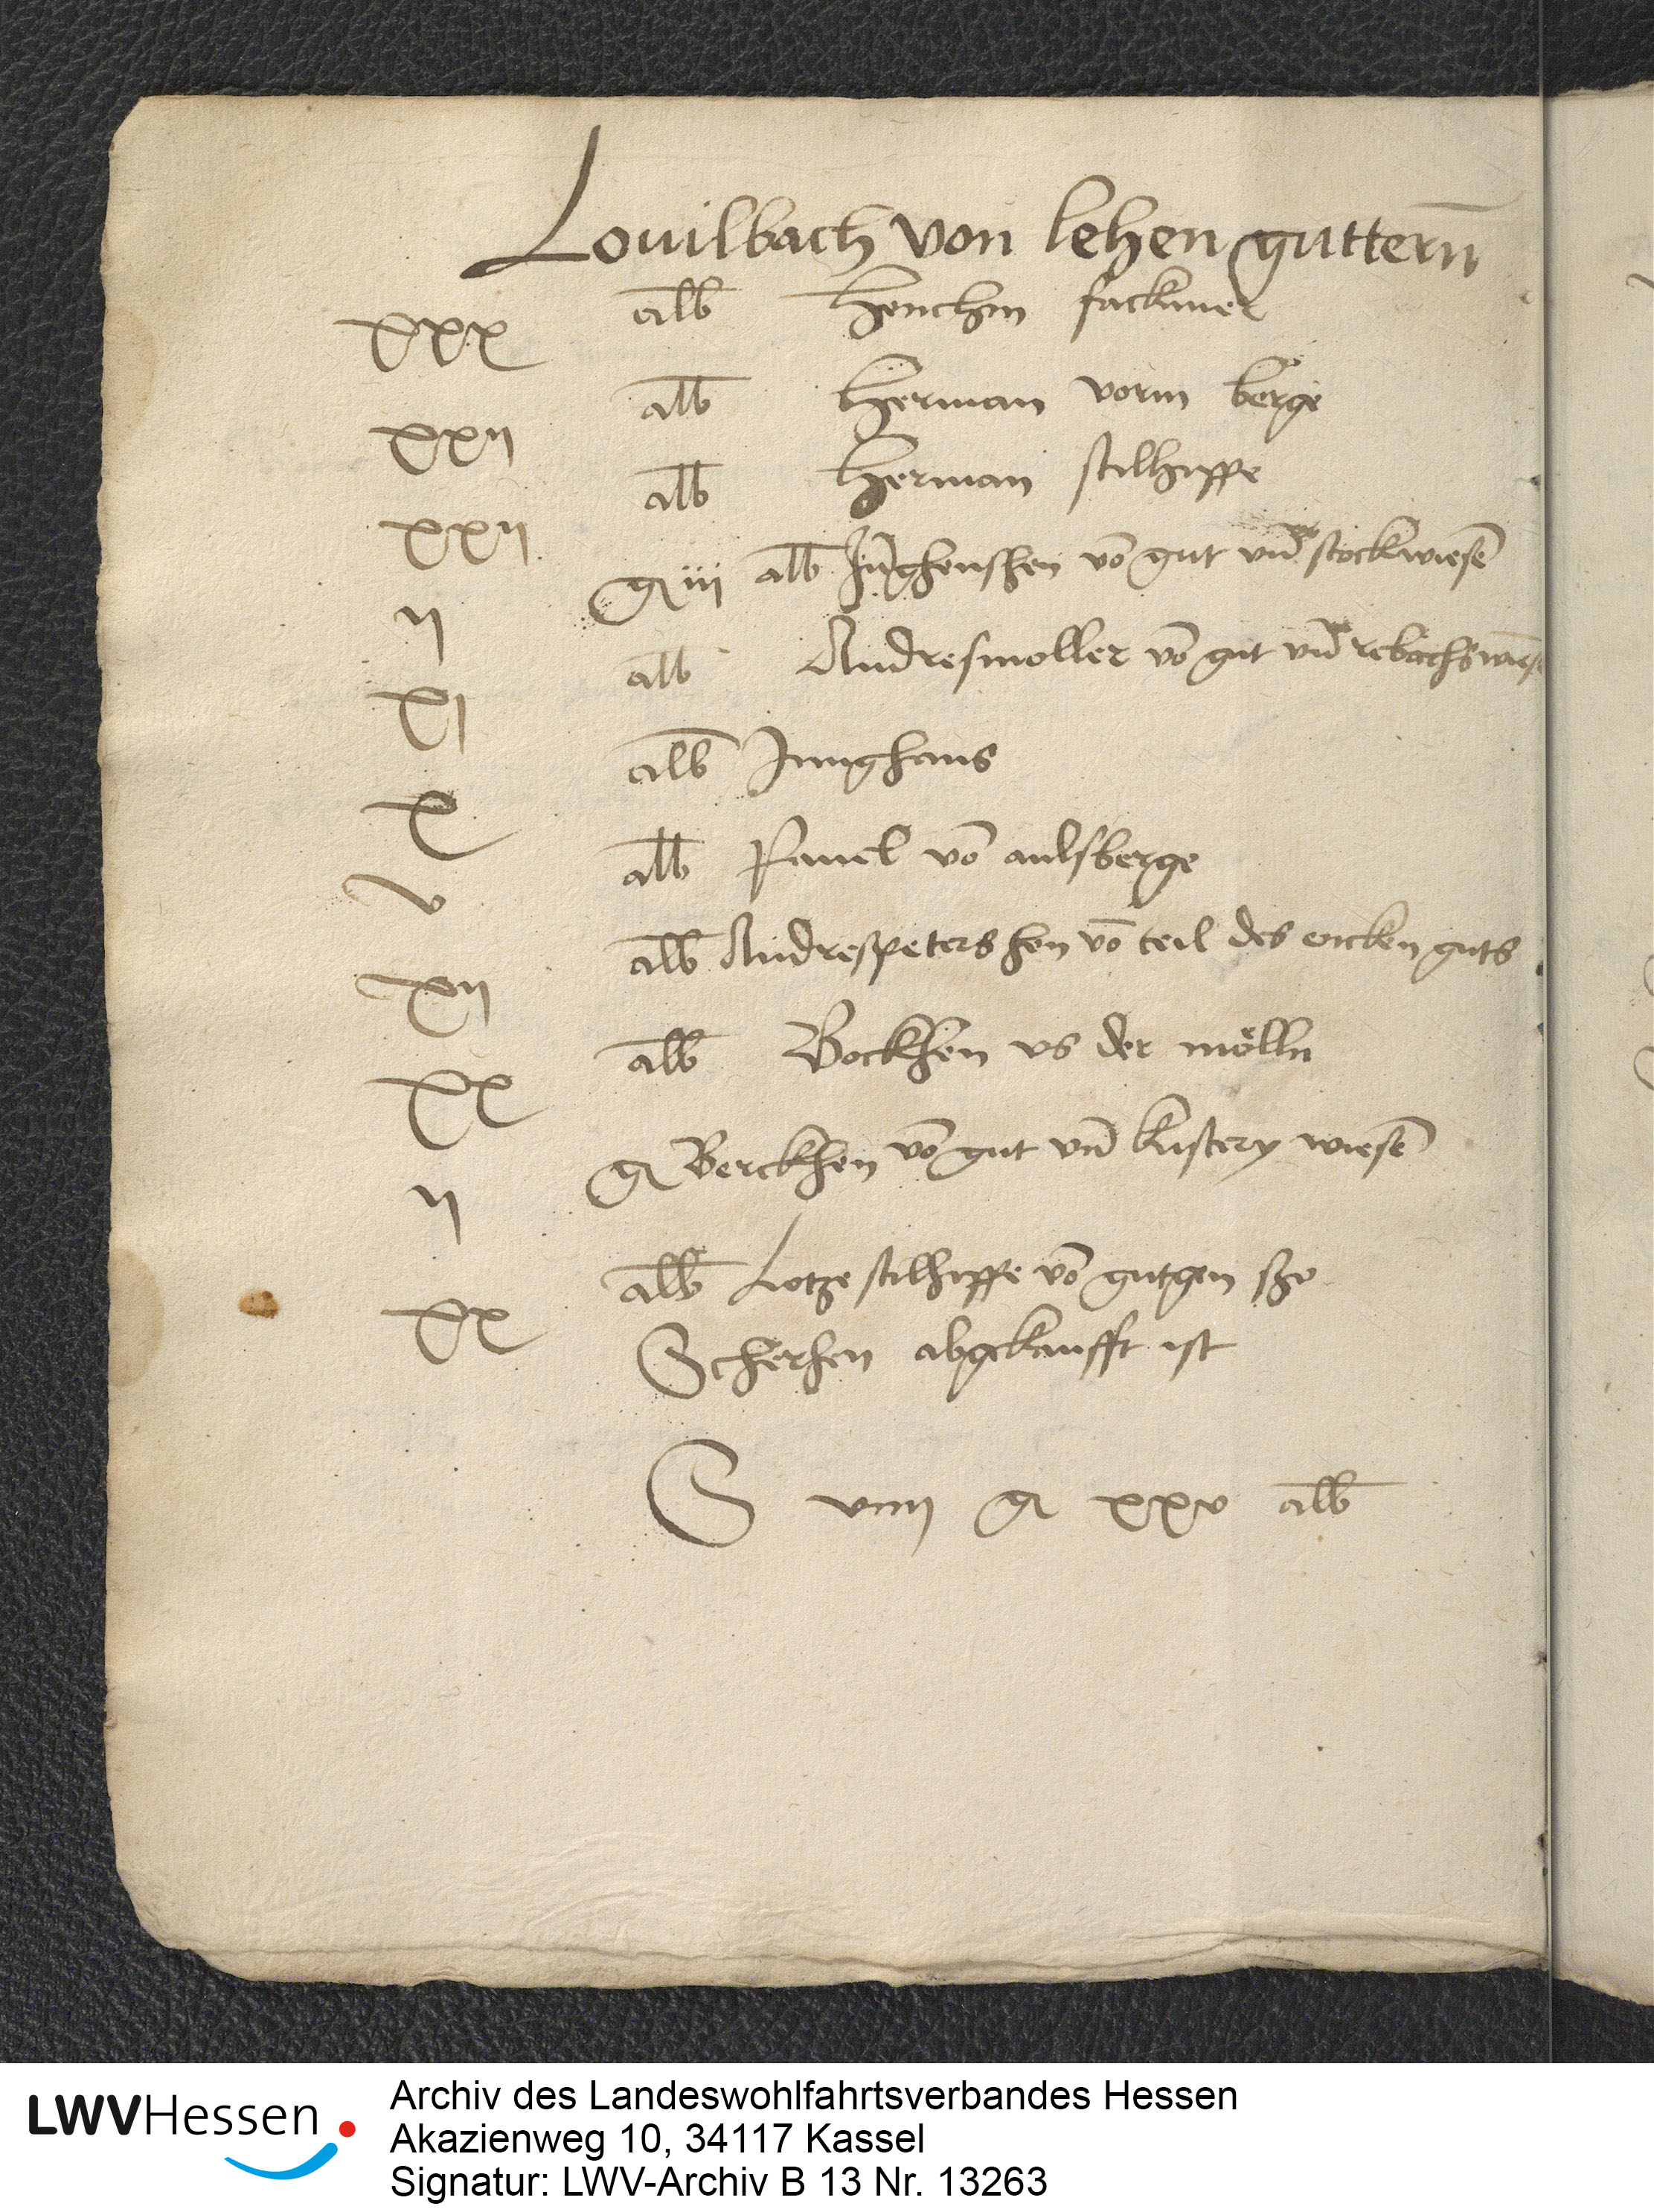 Louilbach von lehen gutternn̄
xxx alb Henchin fackiner
xxii alb Herman vorm berge
xxii alb Herman stilhippe
ii g iii alb Jūghenchen vō gut vnd stockwiesē
xi alb Andresmoller vō gut vnd rebachswiese
x alb Junghans
v alb Pauel vō aulsberge
xii alb Andrespetershen vō teil des encken guts
xx alb Bockhen vs der mölln
ii g Berckhen vō gut vnd kustery wiesē
xx alb Lotze stilhippe vō gutgen szo
Scherhen abgekaufft ist
S viiii g xxv alb
LWVHessen
Archiv des Landeswohlfahrtsverbandes Hessen
Akazienweg 10, 34117 Kassel
Signatur: LWV-Archiv B 13 Nr. 13263